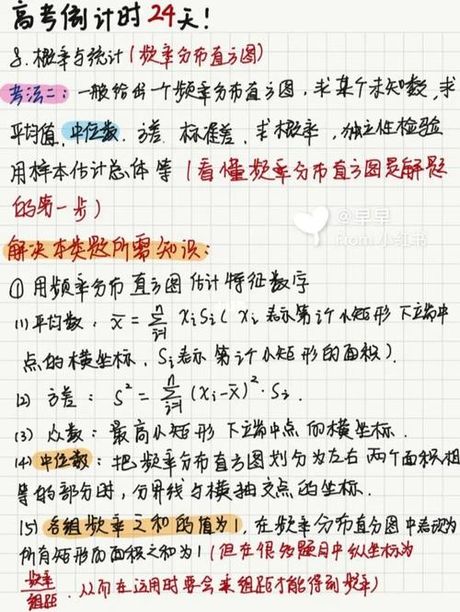 高考倒计时24天!
8.概率与统计(频率分布直方图)
考法二:一般给出一个频率分布直方图,求某个未知数,求
平均值,中位数,方差,标准差,求概率,独立性检验
用样本估计总体等(看懂频率分布直方图是解题
的第一步)
@早早
From 小红书
解决本类题所需知识:
①用频率分布直方图估计特征数字
(1)平均数:x̄=∑ⁿᵢ₌₁ xᵢSᵢ(xᵢ表示第i个小矩形下端中
点的横坐标,Sᵢ表示第i个小矩形的面积).
(2)方差:S²=∑ⁿᵢ₌₁(xᵢ-x̄)²·Sᵢ.
(3)众数:最高小矩形下端中点的横坐标.
(4)中位数:把频率分布直方图划分为左右两个面积相
等的部分时,分界线与横轴交点的坐标.
(5)各组频率之和的值为1,在频率分布直方图中表现为
所有矩形的面积之和为1(但在很多题目中纵坐标为
频率/组距,从而在运用时要会乘组距才能得到频率)